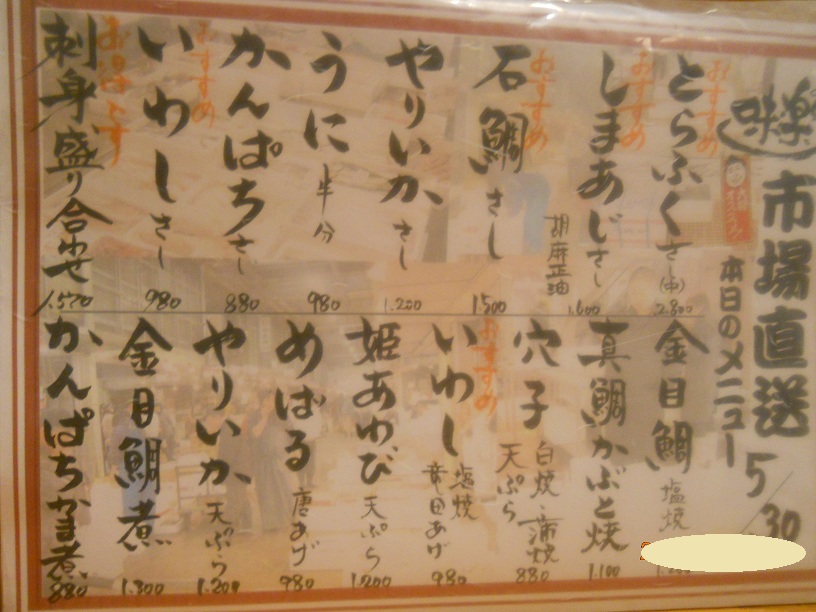 味楽
市場直送
本日のメニュー
5/30
おすすめ
とらふくさし(中)
2.800
おすすめ
しまあじさし
1.600
胡麻正油
おすすめ
石鯛さし
1.500
やりいかさし
1.200
うに半分
980
かんぱちさし
880
おすすめ
いわしさし
980
お得です
刺身盛り合わせ
1.570
金目鯛塩焼
真鯛かぶと焼
1.100
穴子白焼・蒲焼
天ぷら
880
おすすめ
いわし塩焼
竜田あげ
980
姫あわび天ぷら
1.200
めばる唐あげ
980
やりいか天ぷら
1.200
金目鯛煮
1.300
かんぱちかま煮
880